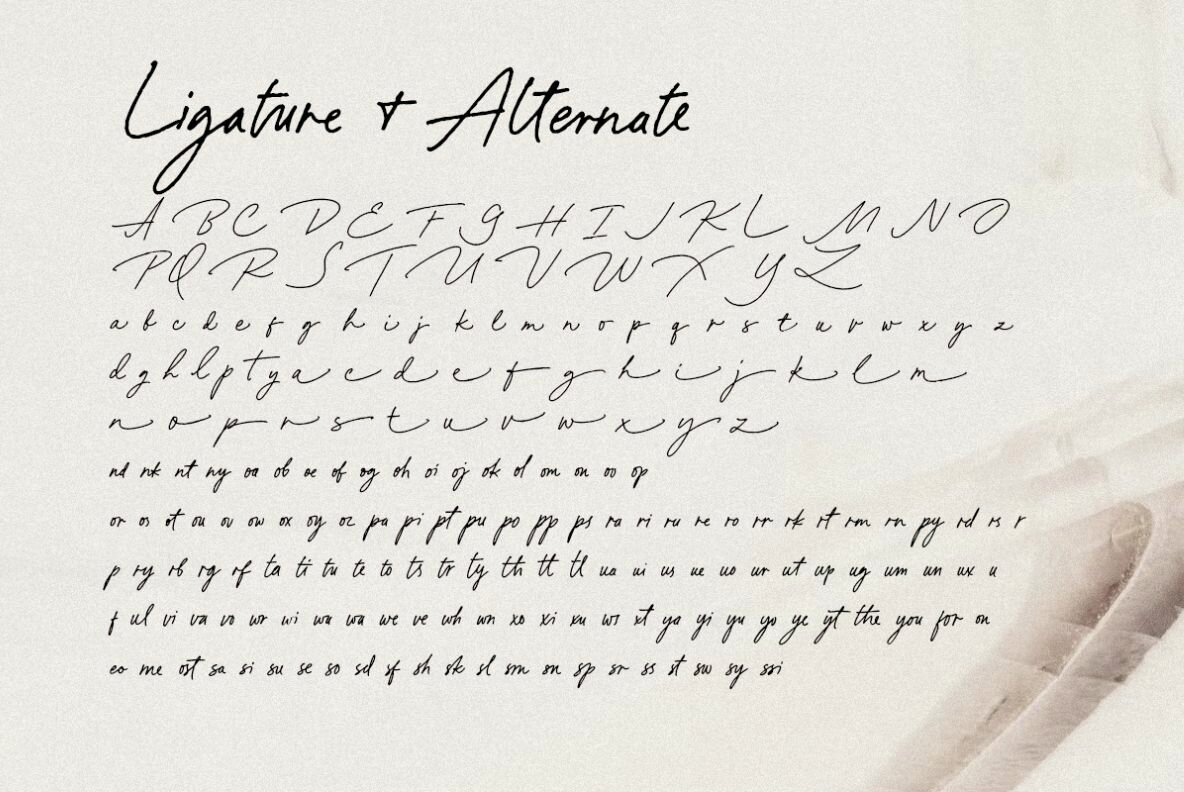 Ligature & Alternate
A B C D E F G H I J K L M N O
P Q R S T U V W X Y Z
a b c d e f g h i j k l m n o p q r s t u v w x y z
d g h l p t y a c d e f g h i j k l m
n o p r s t u v w x y z
nd nk nt ny oa ob oe of og oh oi oj ok ol om on oo op
or os ot ou ov ow ox oy oz pa pi pt pu po pp ps ra ri ru re ro rr rk rt rm rn py rd rs r
p ry rb rg rf ta ti tu te to ts tr ty th tt tl ua ui us ue uo ur ut up ug um un ux u
f ul vi va vo wr wi wu wa we ve wh wn xo xi xu ws xt ya yi yu yo ye yt the you for on
eo me ost sa si su se so sd sf sh sk sl sm sn sp sr ss st sw sy ssi